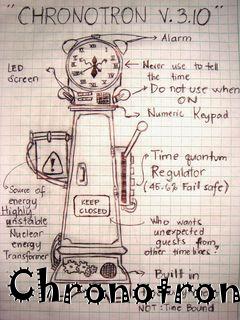 "CHRONOTRON V.3.10"
Alarm
LED
SCREEN
Never use to tell
the time
Do not use when
ON
Numeric Keypad
Time quantum
Regulator
(45.6% Fail safe)
Source of
energy
Highly
unstable
Nuclear
energy
Transformer
KEEP
CLOSED
Who wants
unexpected
guests from
other time lines?
Built in
Chronotron
NOT: Time Bound